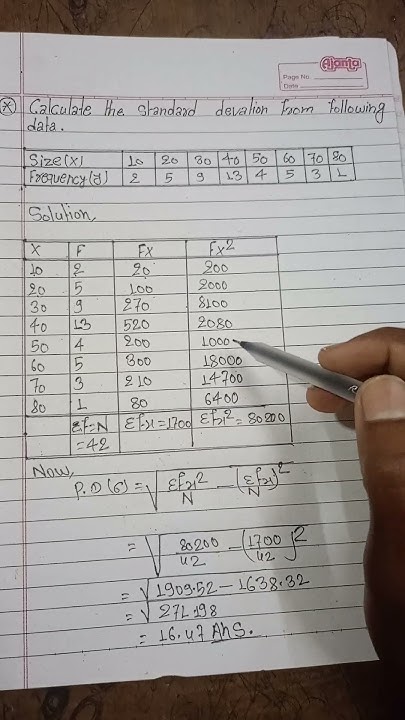 Ajanta
Page No.
Date
* Calculate the standard devation from following
data.
Size(X) 10 20 30 40 50 60 70 80
Frequency(f) 2 5 9 13 4 5 3 1
Solution,
X F FX FX²
10 2 20 200
20 5 100 2000
30 9 270 8100
40 13 520 2080
50 4 200 1000
60 5 300 18000
70 3 210 14700
80 1 80 6400
Σf=N Σfx=1700 Σfx²=80200
=42
Now,
P.D(σ)=√Σfx²/N-(Σfx/N)²
=√80200/42-(1700/42)²
=√1909.52-1638.32
=√271.198
=16.47 Ans.